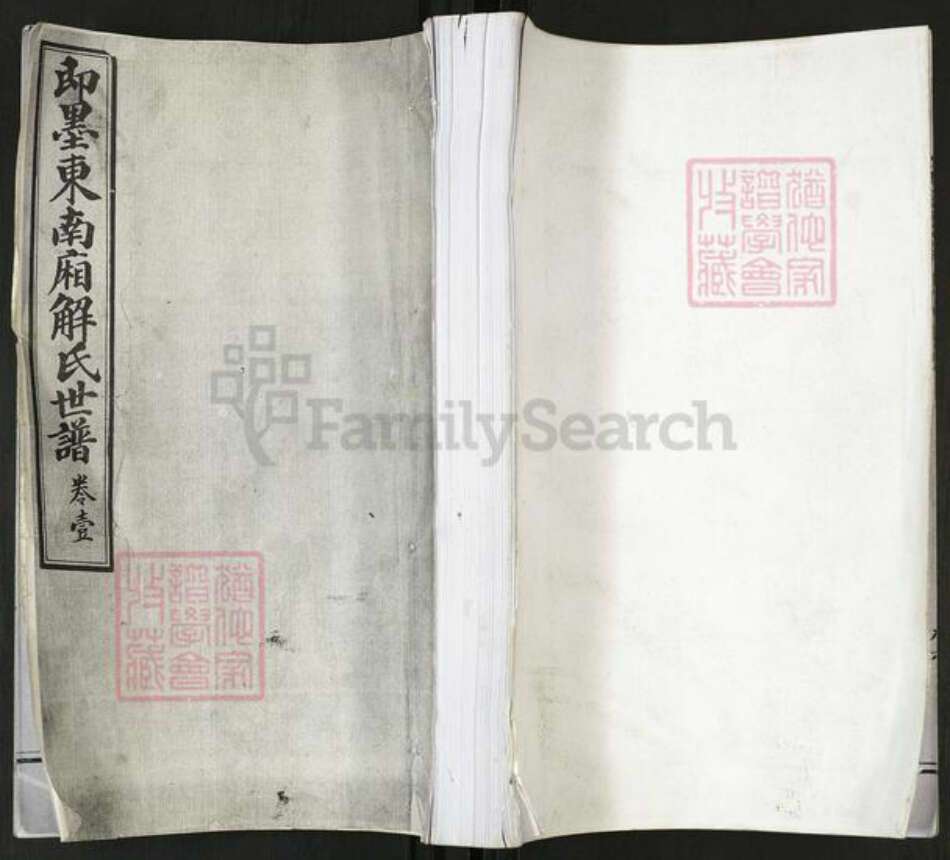 即墨東南廂解氏世譜
卷壹
FamilySearch
猶他家
譜學會
收藏
猶他家
譜學會
收藏